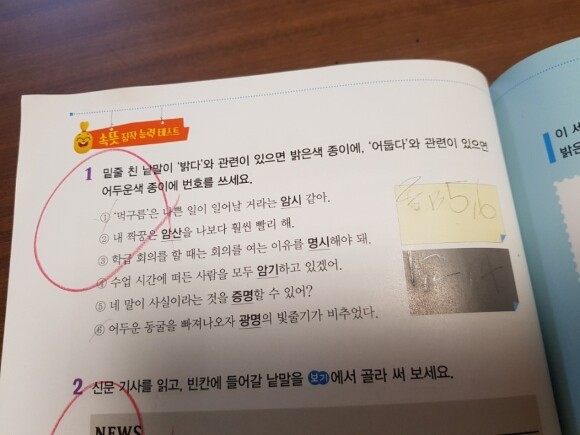 속뜻 짐작 능력 테스트
1 밑줄 친 낱말이 '밝다'와 관련이 있으면 밝은색 종이에, '어둡다'와 관련이 있으면
어두운색 종이에 번호를 쓰세요.
① '먹구름'은 나쁜 일이 일어날 거라는 암시 같아.
② 내 짝꿍은 암산을 나보다 훨씬 빨리 해.
③ 학급 회의를 할 때는 회의를 여는 이유를 명시해야 돼.
④ 수업 시간에 떠든 사람을 모두 암기하고 있겠어.
⑤ 네 말이 사실이라는 것을 증명할 수 있어?
⑥ 어두운 동굴을 빠져나오자 광명의 빛줄기가 비추었다.
5, 6
2 신문 기사를 읽고, 빈칸에 들어갈 낱말을 보기에서 골라 써 보세요.
NEWS
이 세
밝은